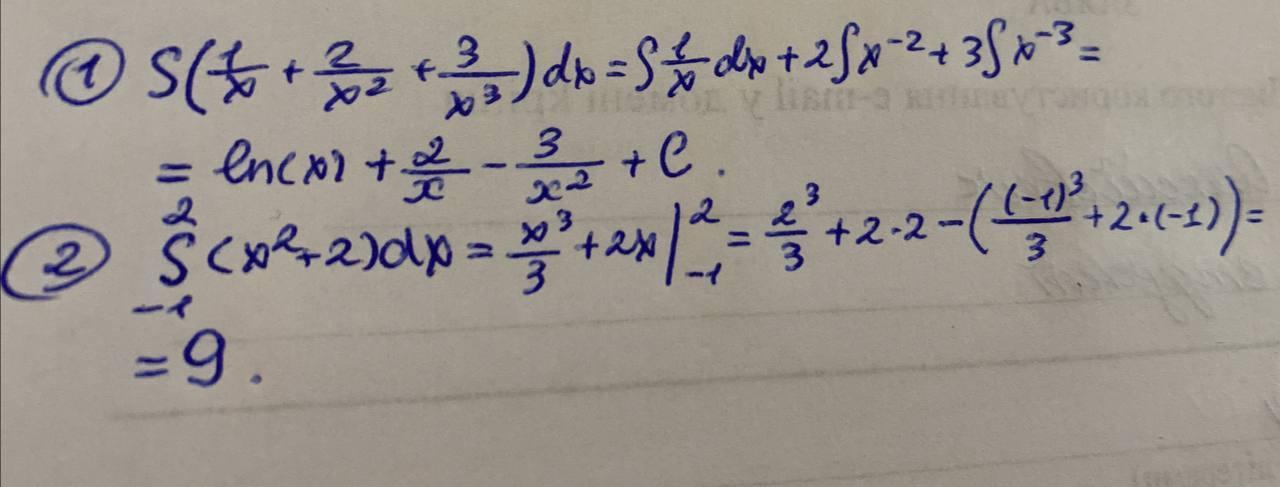 ① ∫(1/x + 2/x² + 3/x³)dx = ∫1/x dx + 2∫x⁻² + 3∫x⁻³ =
= ln(x) + 2/x - 3/x² + C.
② ∫₋₁² (x²+2)dx = x³/3 + 2x |₋₁² = 2³/3 + 2·2 - ((-1)³/3 + 2·(-1)) =
= 9.